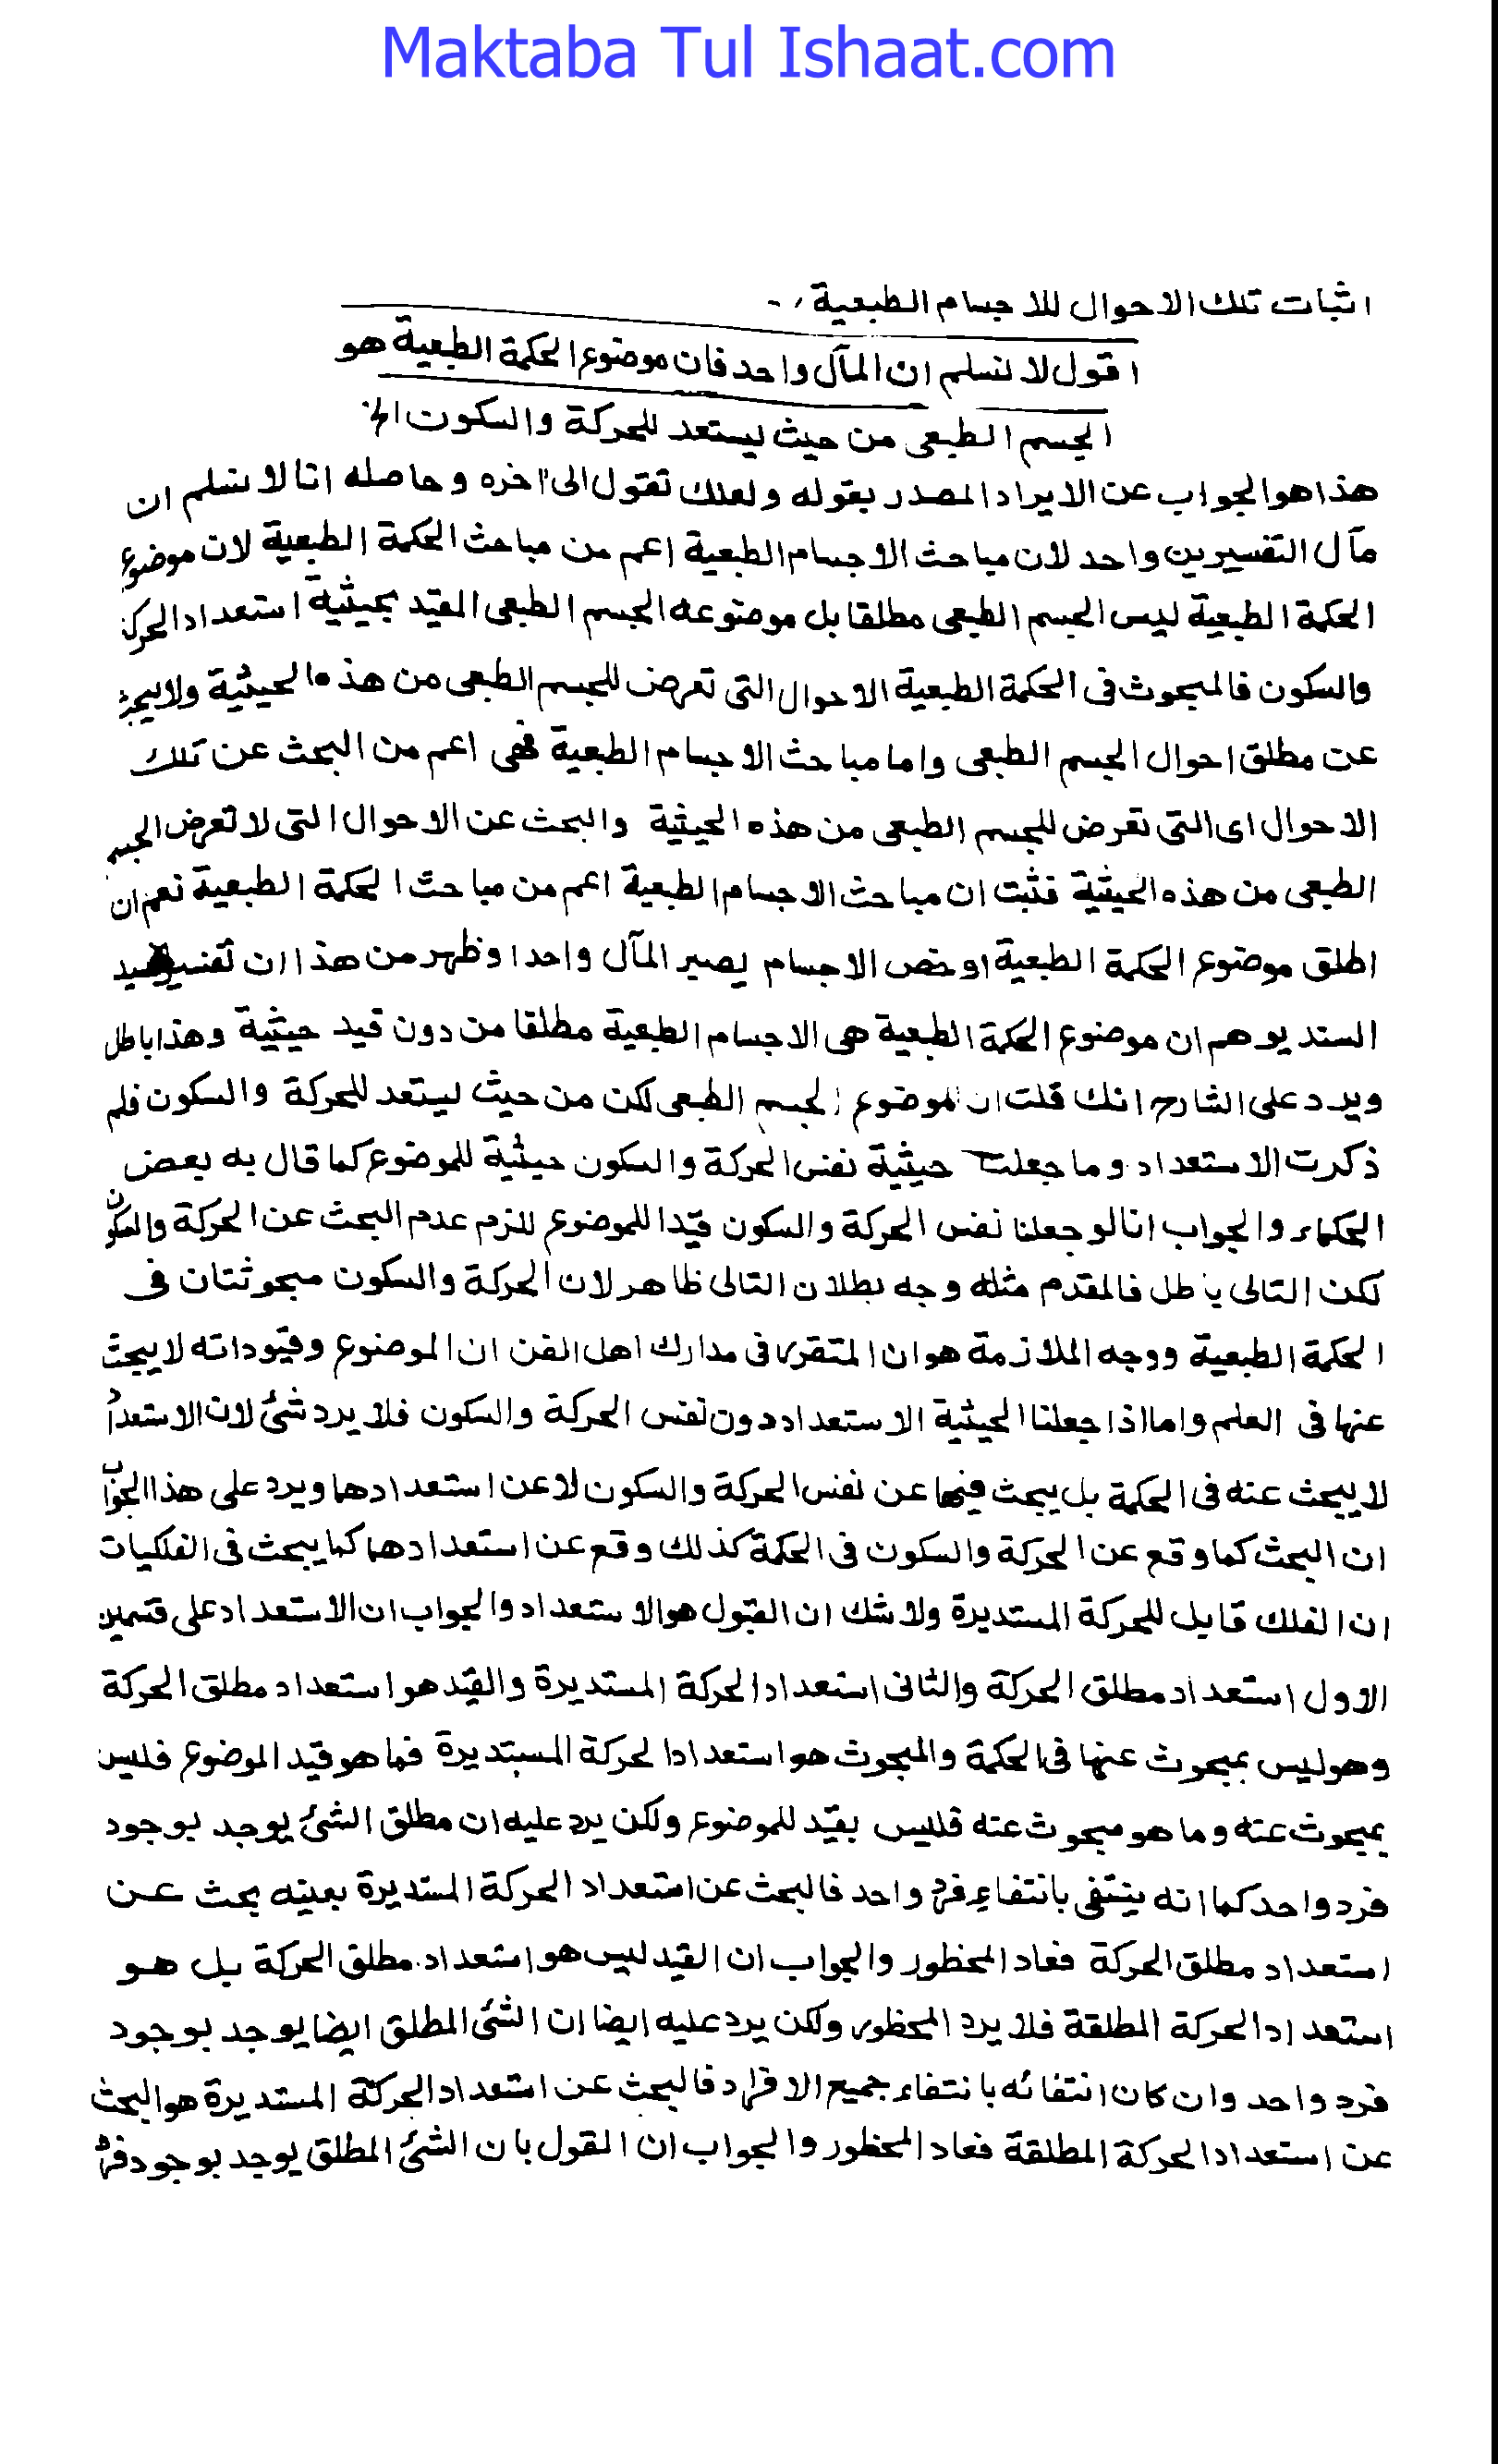 Maktaba Tul Ishaat.com
اثبات تلك الاحوال للاجسام الطبعية ،-
اقول لا نسلم ان المآل واحد فان موضوع الحكمة الطبعية هو
الجسم الطبعى من حيث يستعد للحركة والسكون الخ
هذا هوا لجواب عن الايراد المصدر بقوله ولعلك تقول الى آخره وحاصله انا لا نسلم ان
مآل التفسيرين واحد لان مباحث الاجسام الطبعية اعم من مباحث الحكمة الطبعية لان موضوع
الحكمة الطبعية ليس الجسم الطبعى مطلقا بل موضوعه الجسم الطبعى المقيد بحيثية استعداد الحركة
والسكون فالمبحوث فى الحكمة الطبعية الاحوال التى تعرض للجسم الطبعى من هذه الحيثية ولا يبحث
عن مطلق احوال الجسم الطبعى واما مباحث الاجسام الطبعية فهى اعم من البحث عن تلك
الاحوال اى التى تعرض للجسم الطبعى من هذه الحيثية والبحث عن الاحوال التى لا تعرض الجسم
الطبعى من هذه الحيثية فثبت ان مباحث الاجسام الطبعية اعم من مباحث الحكمة الطبعية نعم ان
اطلق موضوع الحكمة الطبعية او خص الاجسام يصير المآل واحدا وظهر من هذا ان تفسير
السند يوهم ان موضوع الحكمة الطبعية هى الاجسام الطبعية مطلقا من دون قيد حيثية وهذا باطل
ويرد على الشارح انك قلت ان الموضوع الجسم الطبعى لكن من حيث ليستعد للحركة والسكون فلم
ذكرت الاستعداد وما جعلت حيثية نفس الحركة والسكون حيثية للموضوع كما قال به بعض
الحكماء والجواب انا لو جعلنا نفس الحركة والسكون قيدا للموضوع للزم عدم البحث عن الحركة والسكون
لكن التالى باطل فالمقدم مثله وجه بطلان التالى ظاهر لان الحركة والسكون مبحوثتان فى
الحكمة الطبعية ووجه الملازمة هو ان المتقرر فى مدارك اهل الفن ان الموضوع وقيوداته لا يبحث
عنها فى العلم واما اذا جعلنا الحيثية الاستعداد دون نفس الحركة والسكون فلا يرد شئ لان الاستعداد
لا يبحث عنه فى الحكمة بل يبحث فيها عن نفس الحركة والسكون لا عن استعدادها ويرد على هذا الجواب
ان البحث كما وقع عن الحركة والسكون فى الحكمة كذلك وقع عن استعدادهما كما يبحث فى الفلكيات
ان الفلك قابل للحركة المستديرة ولا شك ان القبول هو الاستعداد والجواب ان الاستعداد على قسمين
الاول استعداد مطلق الحركة والثانى استعداد الحركة المستديرة والقيد هو استعداد مطلق الحركة
وهو ليس بمبحوث عنها فى الحكمة والمبحوث هو استعداد الحركة المستديرة فما هو قيد الموضوع فليس
بمبحوث عنه وما هو مبحوث عنه فليس بقيد للموضوع ولكن يرد عليه ان مطلق الشئ يوجد بوجود
فرد واحد كما انه ينتفى بانتفاء فرد واحد فالبحث عن استعداد الحركة المستديرة بعينه بحث عن
استعداد مطلق الحركة فعاد المحظور والجواب ان القيد ليس هو استعداد مطلق الحركة بل هو
استعداد الحركة المطلقة فلا يرد المحظور ولكن يرد عليه ايضا ان الشئ المطلق ايضا يوجد بوجود
فرد واحد وان كان انتفائه بانتفاء جميع الافراد فالبحث عن استعداد الحركة المستديرة هو البحث
عن استعداد الحركة المطلقة فعاد المحظور والجواب ان القول بان الشئ المطلق يوجد بوجود فرد